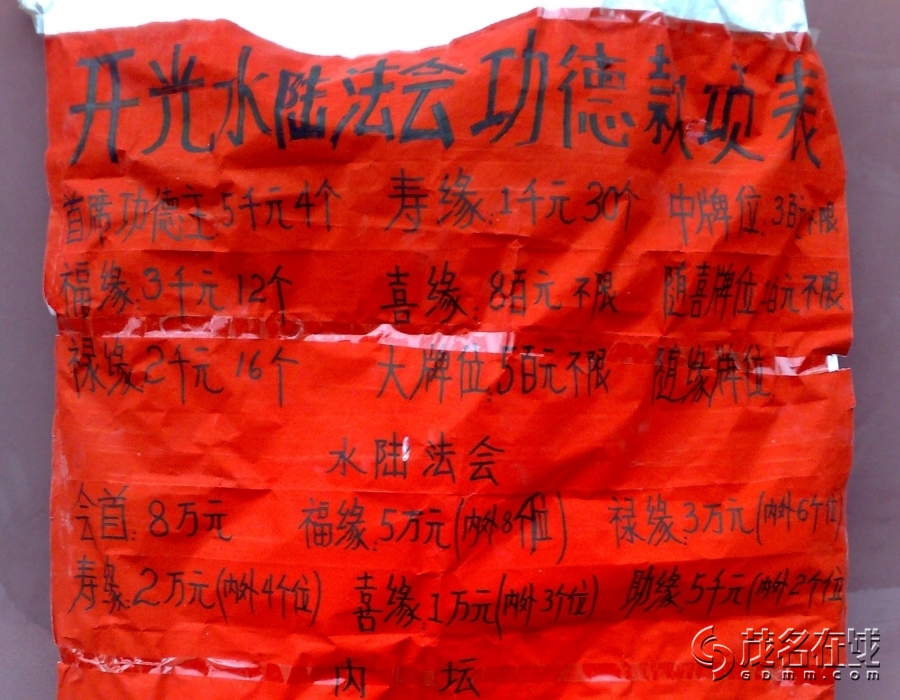 开光水陆法会功德款项表
首席功德主:5千元4个 寿缘:1千元30个 中牌位:3百元不限
福缘:3千元12个 喜缘:8百元不限 随喜牌位:1百元不限
禄缘:2千元16个 大牌位:5百元不限 随缘牌位:
水陆法会
会首:8万元 福缘:5万元(内外8个位) 禄缘:3万元(内外6个位)
寿缘:2万元(内外4个位) 喜缘:1万元(内外3个位) 助缘:5千元(内外2个位
内坛
茂名在线
gomm.com